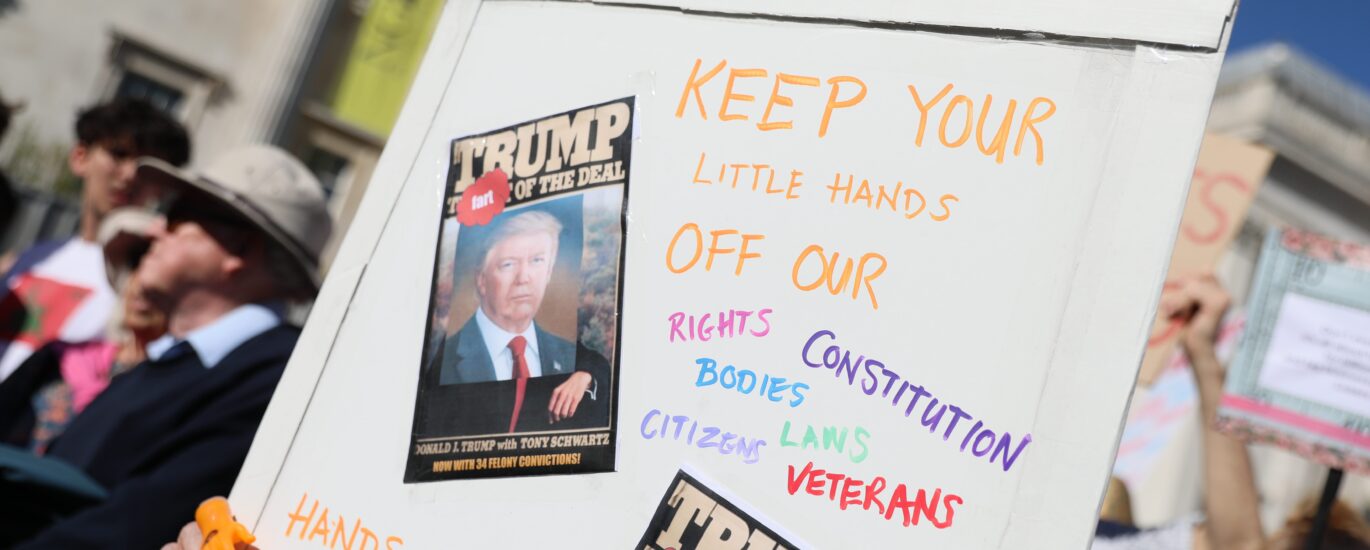 KEEP YOUR
LITTLE HANDS
OFF OUR
RIGHTS
CONSTITUTION
BODIES
CITIZENS
LAWS
VETERANS
TRUMP
fart
OF THE DEAL
DONALD J. TRUMP with TONY SCHWARTZ
NOW WITH 34 FELONY CONVICTIONS!
HANDS